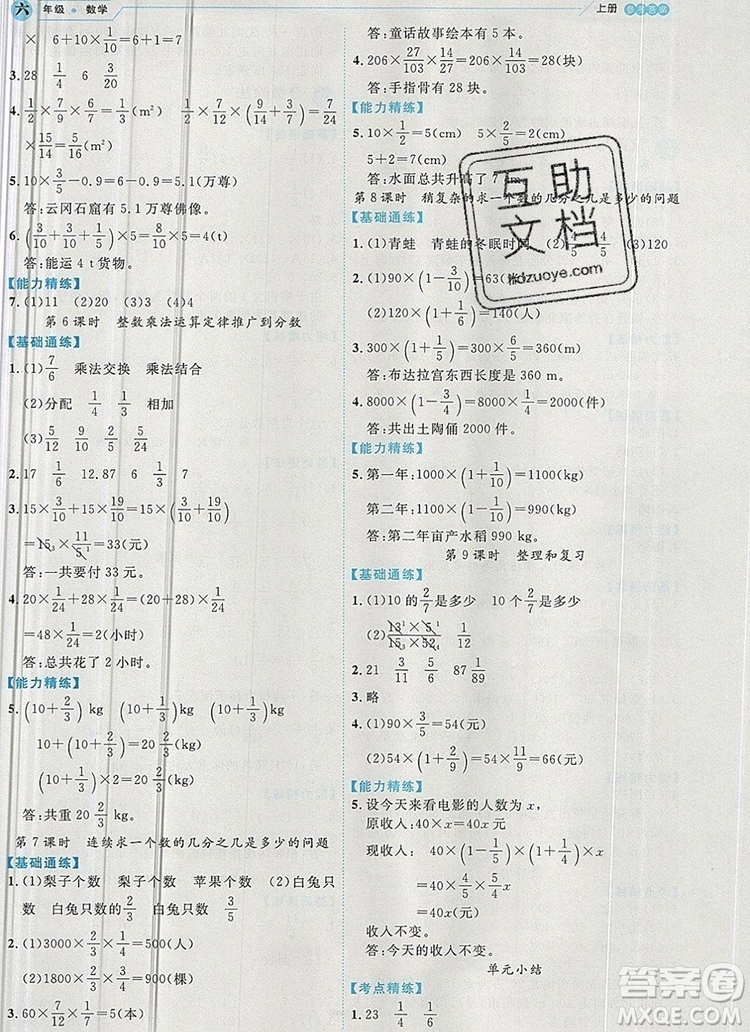 六 年级 数学
上册
× 6+10×1/10=7
3. 28 1/4 6 3/4
4. 1/2×7/9×6/7=1/3(m²) 1/2×7/9×(9/14+3/7)=7/24
×15/14=5/16(m²)
5. 6-6×3/20=6-0.9=5.1(万尊)
答:云冈石窟有5.1万尊佛像。
6. (3/10+3/10+1/5)×5=4(t)
答:能运4t货物。
【能力精练】
7. (1)11 (2)20 (3)3 (4)4
第6课时 整数乘法运算定律推广到分数
【基础通练】
1. (1)7/6 乘法交换 乘法结合
(2)分配 1/4 1/3 相加
(3)5/24 2/9 5/24
2. 17 1/6 12.87 6 1/3
3. 15×3/10+15×19/10=15×(3/10+19/10)
=15×11/5=33(元)
答:一共要付33元。
4. 20×1/24+28×1/24=(20+28)×1/24
=48×1/24=2(小时)
答:总共花了2小时。
【能力精练】
5. (10+2/3)kg (10×1/3)kg (10+1/3)kg
10+(10+2/3)=20 2/3(kg)
(10+1/3)×2=20 2/3(kg)
答:共重20 2/3 kg。
第7课时 连续求一个数的几分之几是多少的问题
【基础通练】
1. (1)梨子个数 梨子个数 苹果个数 (2)白兔只
数 白兔只数的2/3 3/5
2. (1)3000×2/3×1/4=500(人)
(2)1800×5/6×3/5=900(棵)
3. 60×7/12×1/7=5(本)
答:童话故事绘本有5本。
4. 206×27/103×14/27=28(块)
答:手指骨有28块。
【能力精练】
5. 10×1/2=5(cm) 5×2/5=2(cm)
5+2=7(cm)
答:水面总共升高了7
第8课时 稍复杂的求一个数的几分之几是多少的问题
【基础通练】
1. (1)青蛙 青蛙的冬眠时间 (3)120
2. (1)90×(1-3/10)=63
(2)120×(1+1/6)=140(人)
3. 300×(1+1/5)=300×6/5=360(m)
答:布达拉宫东西长度是360m。
4. 8000×(1-3/4)=8000×1/4=2000(件)
答:共出土陶俑2000件。
【能力精练】
5. 第一年:1000×(1+1/10)=1100(kg)
第二年:1100×(1-1/10)=990(kg)
答:第二年亩产水稻990kg。
第9课时 整理和复习
【基础通练】
1. (1)10的2/7是多少 10个2/7是多少
(2)13×5/15×52 1/12
2. 21 3/11 5/59 1/6 87 1/89
3. 略
4. (1)90×3/5=54(元)
(2)54×(1+2/9)=54×11/9=66(元)
【能力精练】
5. 设今天来看电影的人数为x,
原收入:40×x=40x(元)
现收入:40×(1-1/5)×(1+1/4)×x
=40×4/5×5/4×x
=40x(元)
收入不变。
答:今天的收入不变。
单元小结
【考点精练】
1. 23 1/4 1/6 4
互助文档
zuoye.com
答案圈
MXQE.COM